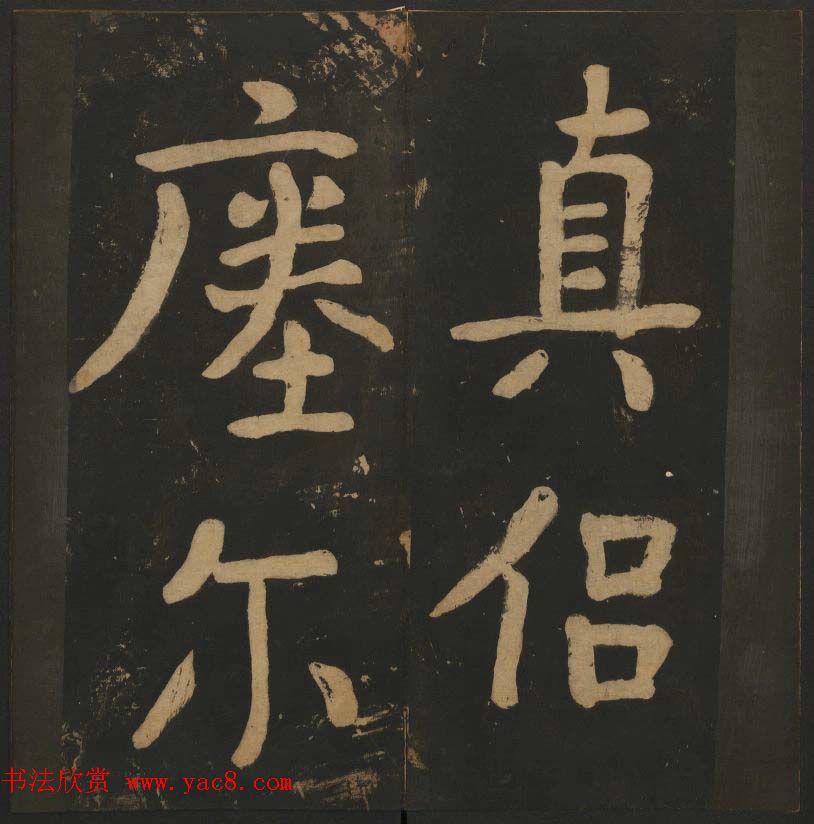 真侣
瘞尔
书法欣赏 www.yac8.com